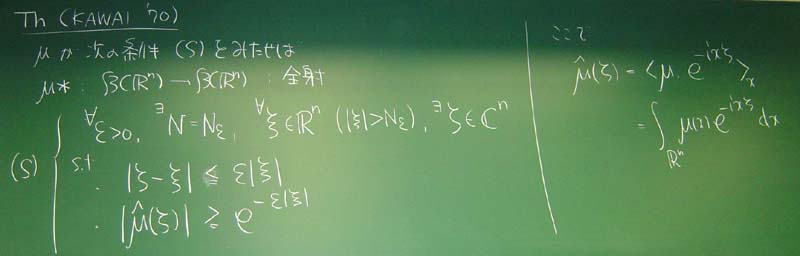 Th (KAWAI '70)
μが次の条件 (S) をみたせば
μ* : 𝓑(ℝⁿ) → 𝓑(ℝⁿ) : 全射
(S) { ∀ε>0, ∃N=Nε, ∀ξ∈ℝⁿ (|ξ|>Nε), ∃ζ∈ℂⁿ
s.t
・ |ζ-ξ| ≦ ε|ξ|
・ |μ̂(ζ)| ≧ e^{-ε|ξ|}
ここで
μ̂(ζ) = <μ, e^{-ixζ}>_x
= ∫_{ℝⁿ} μ(x) e^{-ixζ} dx